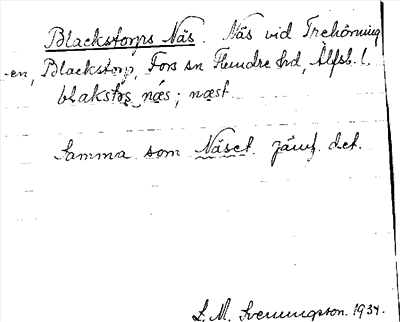 Blackstorps Näs. Näs vid Trehörning
en, Blackstorp, Fors sn Flundre hd, Älfsb. l.
blakstɷs næs; næst
Samma som Näset jämf. det.
L. M. Svenungsson. 1934.